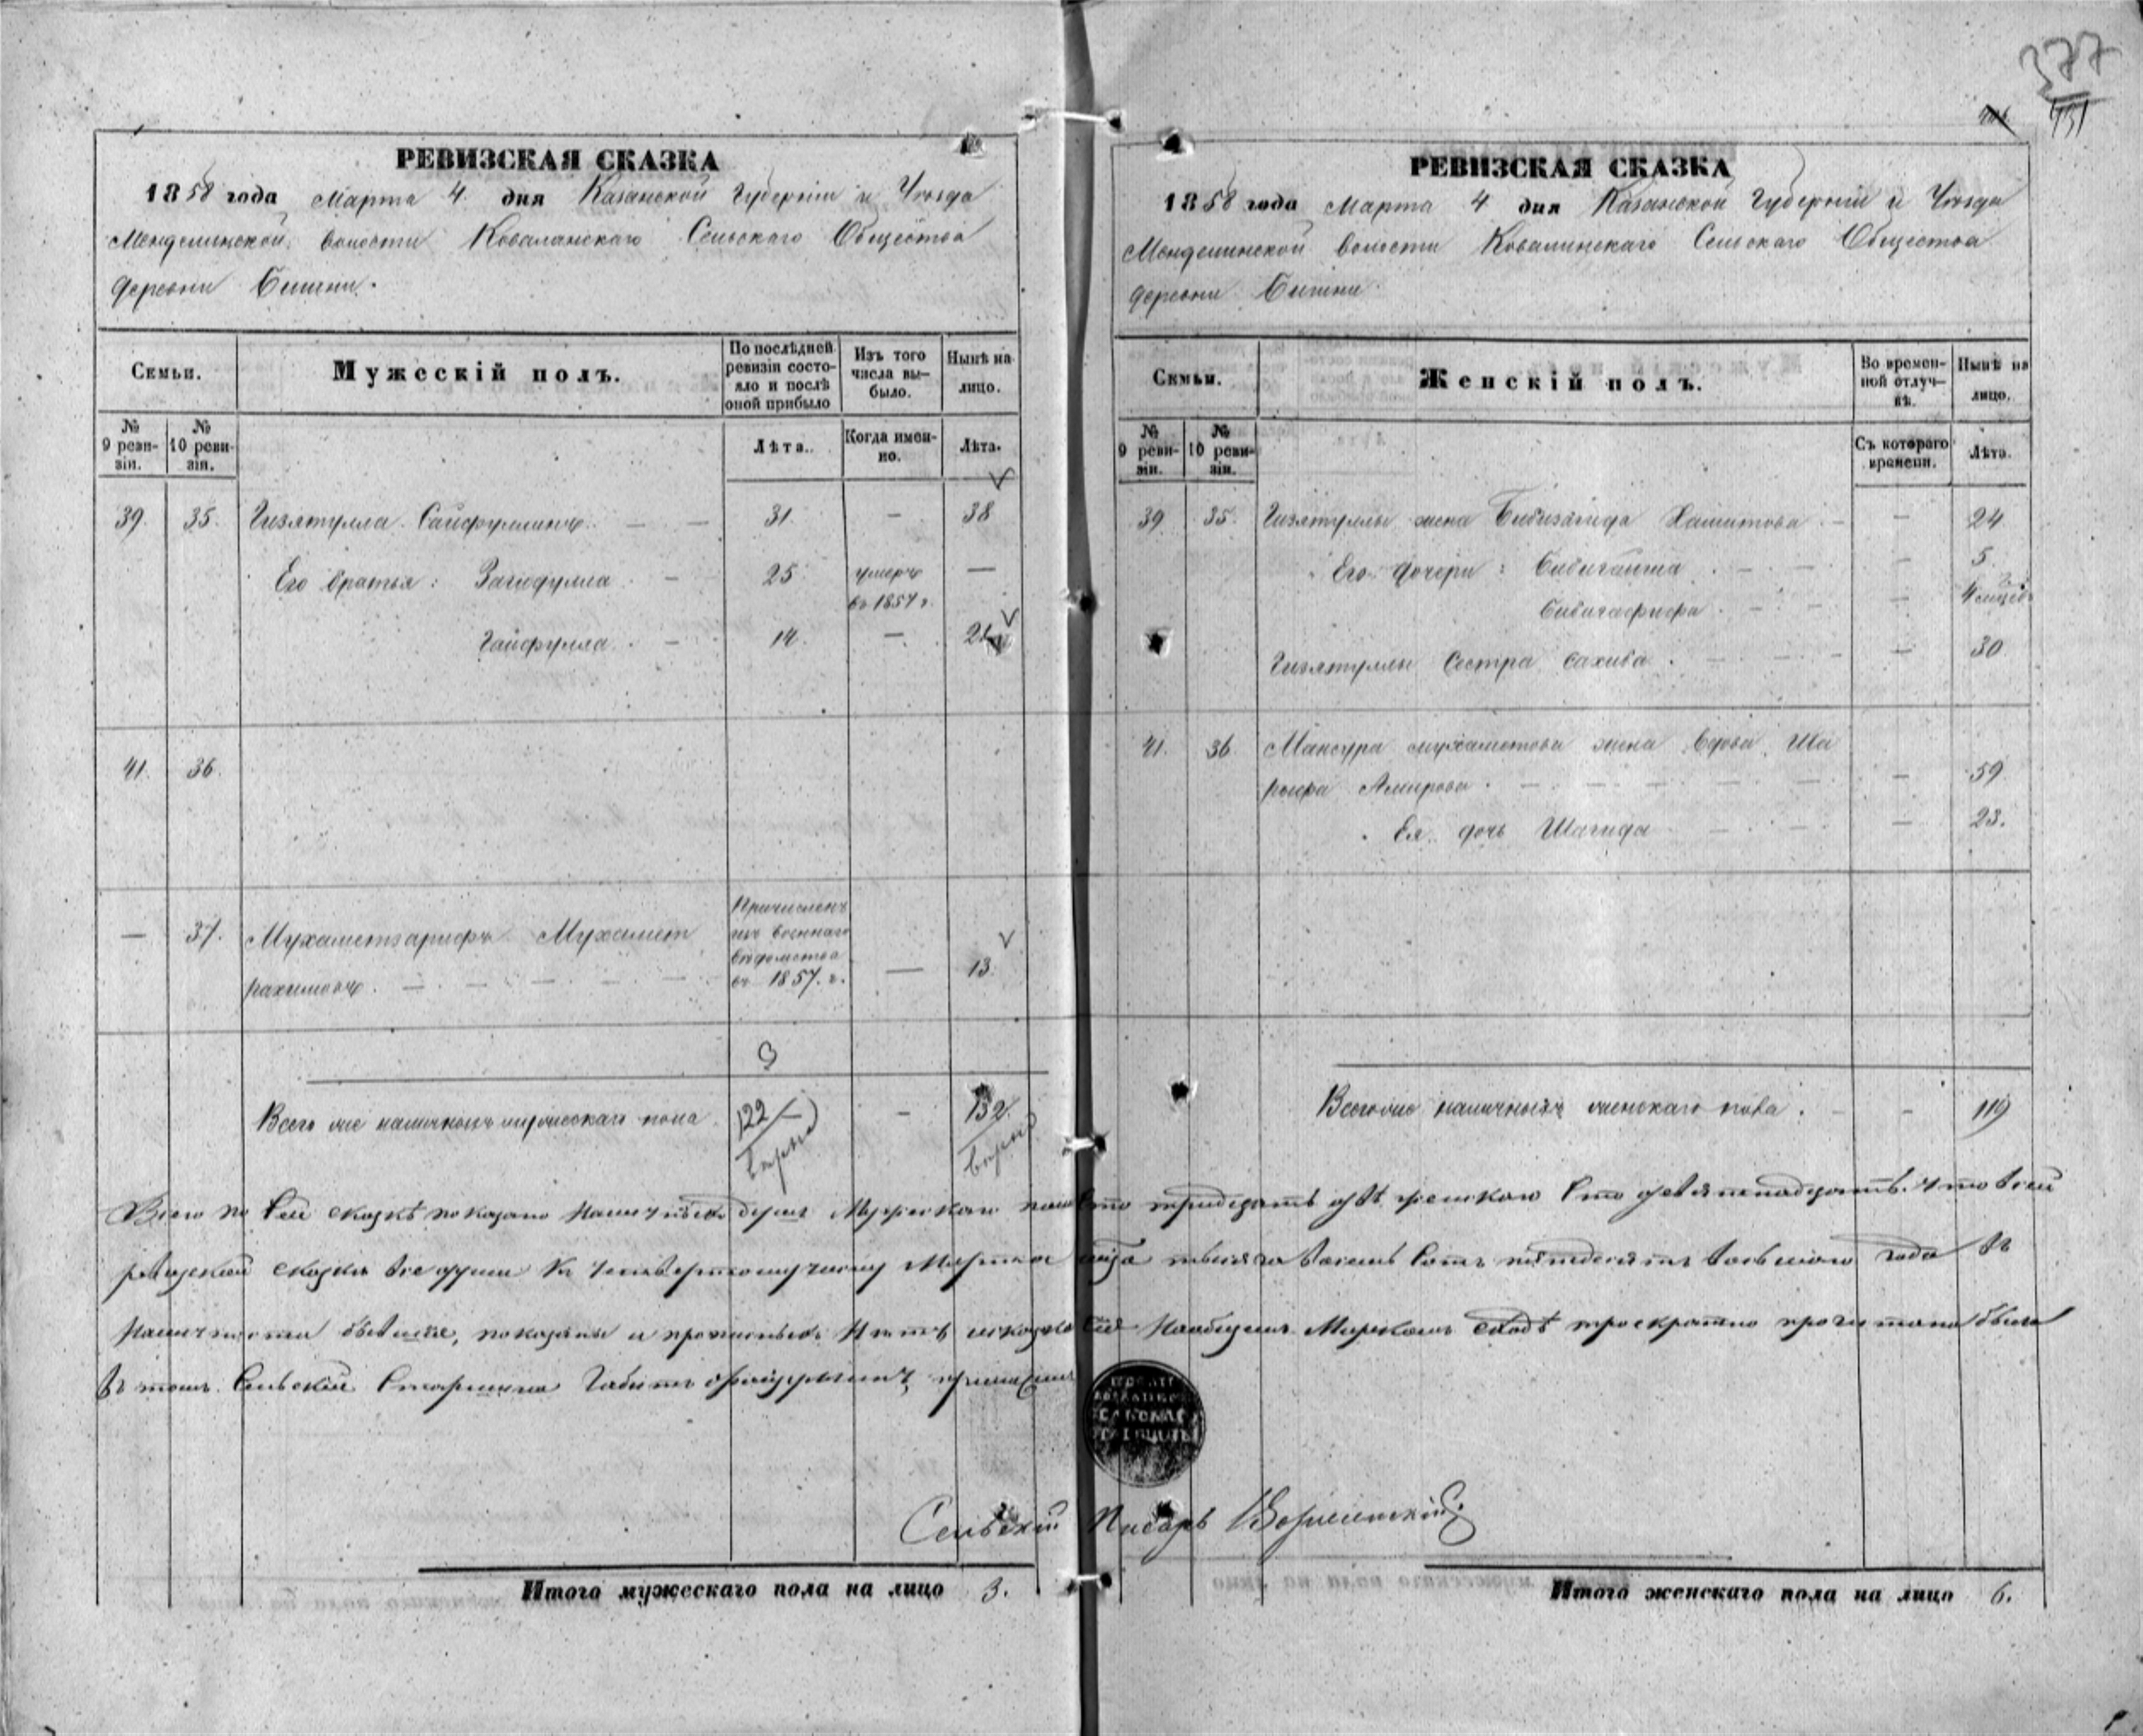 377
151
РЕВИЗСКАЯ СКАЗКА
1858 года Марта 4. дня Казанской Губерніи и Уѣзда
Менделинской волости Ковалинскаго Сельскаго Общества
деревни Бишни.
Семьи.
Мужескій полъ.
По послѣдней ревизіи состояло и послѣ оной прибыло
Изъ того числа выбыло.
Нынѣ на лицо.
№ 9 ревизіи.
№ 10 ревизіи.
Лѣта.
Когда именно.
Лѣта.
39. 35. Гизятулла Сайфуллинъ — — 31. — 38
Его братья: Загидулла — 25 умеръ въ 1857 г. —
Гайфулла — 14. — 21
41. 36.
— 37. Мухаметзарифъ Мухамет
рахимовъ. — — — — Причисленъ изъ военнаго вѣдомства въ 1857. г. — 13.
3
Всего же наличныхъ мужескаго пола 122 — 132.
РЕВИЗСКАЯ СКАЗКА
1858 года Марта 4 дня Казанской Губерніи и Уѣзда
Менделинской волости Ковалинскаго Сельскаго Общества
деревни Бишни.
Семьи.
Женскій полъ.
Во временной отлучкѣ.
Нынѣ на лицо.
№ 9 ревизіи.
№ 10 ревизіи.
Съ котораго времени.
Лѣта.
39 35. Гизятуллы жена Бибизягида Хашитова — — 24
Его дочери: Бибигайша — — 5.
Бибигафифа — — 4
Гизятуллы сестра Сахиба. — — 30
41. 36. Мансура Мухаметова жена вдова Ша
рыфа Амирова. — — 59
Ея дочь Шагида — — 23.
Всего же наличныхъ женскаго пола. — — 119
Всего по сей сказкѣ показано наличныхъ душъ Мужескаго пола сто тридцать двѣ женскаго сто девятнадцать. что въ сей
ревизской сказкѣ все души къ четвертому числу Марта мѣсяца тысяча восемь сотъ пятдесятъ восьмаго года въ
наличности бывшія, показаны и прописныхъ нѣтъ и сказка сія на общемъ Мирскомъ сходѣ троекратно прочитана была
въ томъ Сельскій Старшина Габитъ
Сельскій Писарь
Итого мужескаго пола на лицо 3.
Итого женскаго пола на лицо 6.